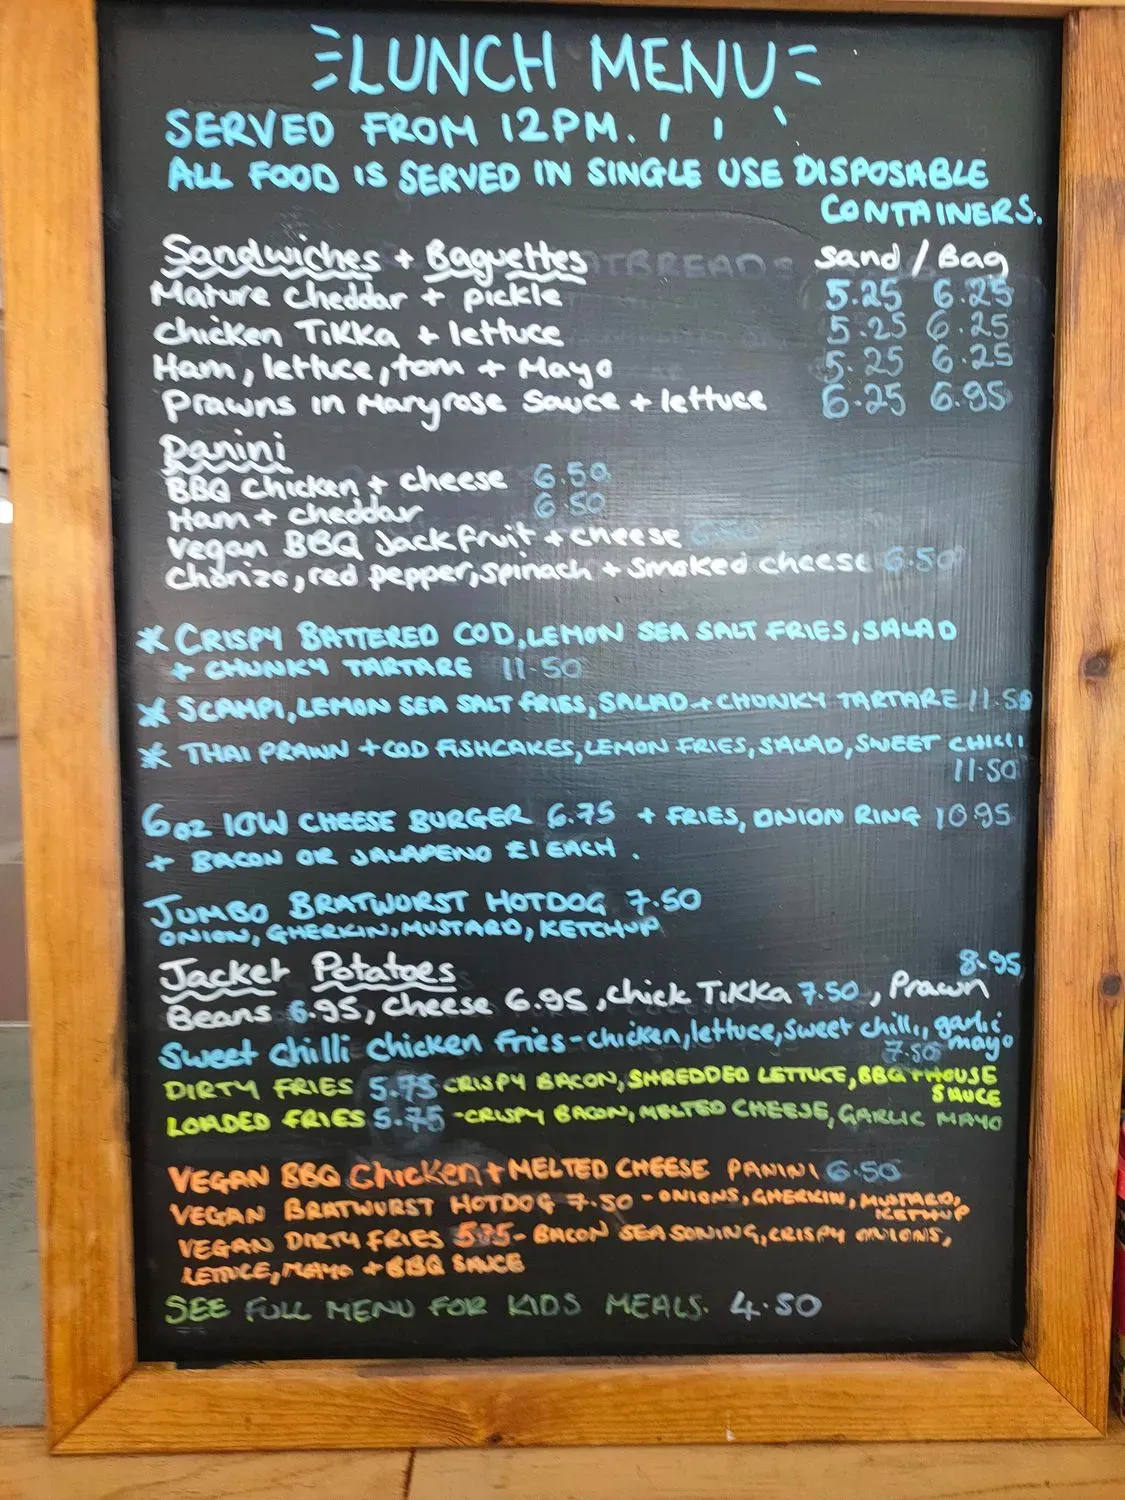 LUNCH MENU
SERVED FROM 12PM.
ALL FOOD IS SERVED IN SINGLE USE DISPOSABLE
CONTAINERS.
Sandwiches + Baguettes Sand / Bag
Mature cheddar + pickle 5.25 6.25
Chicken Tikka + lettuce 5.25 6.25
Ham, lettuce, tom + Mayo 5.25 6.25
Prawns in Maryrose Sauce + lettuce 6.25 6.95
Panini
BBQ Chicken + cheese 6.50
Ham + cheddar 6.50
Vegan BBQ Jackfruit + cheese
Chorizo, red pepper, spinach + smoked cheese 6.50
* CRISPY BATTERED COD, LEMON SEA SALT FRIES, SALAD
+ CHUNKY TARTARE 11.50
* SCAMPI, LEMON SEA SALT FRIES, SALAD + CHONKY TARTARE 11.50
* THAI PRAWN + COD FISHCAKES, LEMON FRIES, SALAD, SWEET CHILLI
11.50
6oz IOW CHEESE BURGER 6.75 + FRIES, ONION RING 10.95
+ BACON OR JALAPENO £1 EACH.
JUMBO BRATWURST HOTDOG 7.50
ONION, GHERKIN, MUSTARD, KETCHUP
Jacket Potatoes 8.95
Beans 6.95, cheese 6.95, chick Tikka 7.50, Prawn
Sweet chilli chicken fries - chicken, lettuce, sweet chilli, garlic
7.50 mayo
DIRTY FRIES 5.75 CRISPY BACON, SHREDDED LETTUCE, BBQ + HOUSE
SAUCE
LOADED FRIES 5.75 - CRISPY BACON, MELTED CHEESE, GARLIC MAYO
VEGAN BBQ Chicken + MELTED CHEESE PANINI 6.50
VEGAN BRATWURST HOTDOG 7.50 - ONIONS, GHERKIN, MUSTARD,
KETCHUP
VEGAN DIRTY FRIES 5.75 - BACON SEASONING, CRISPY ONIONS,
LETTUCE, MAYO + BBQ SAUCE
SEE FULL MENU FOR KIDS MEALS. 4.50